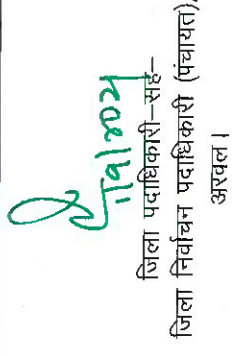 जिला पदाधिकारी–सह–
जिला निर्वाचन पदाधिकारी (पंचायत),
अरवल।